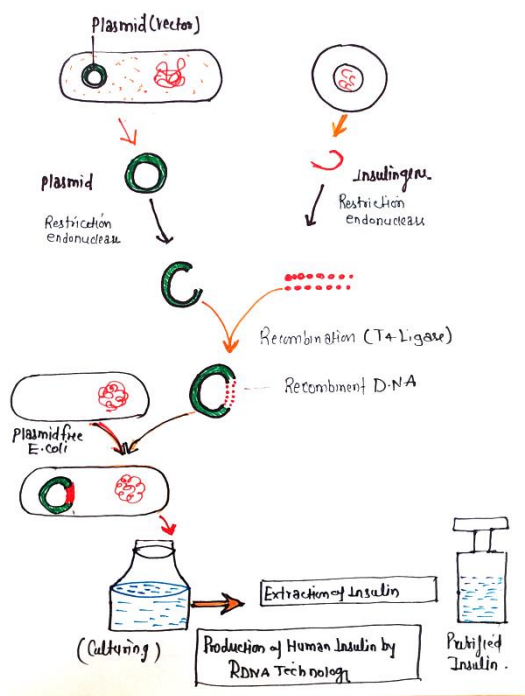 Plasmid (vector)
Plasmid
Insulingene
Restriction
endonuclease
Restriction
endonuclease
Recombination (T4 Ligase)
Recombinent D.NA
Plasmid free
E.coli
(Culturing)
Extraction of Insulin
Production of Human Insulin by
RDNA Technology
Purified
Insulin.